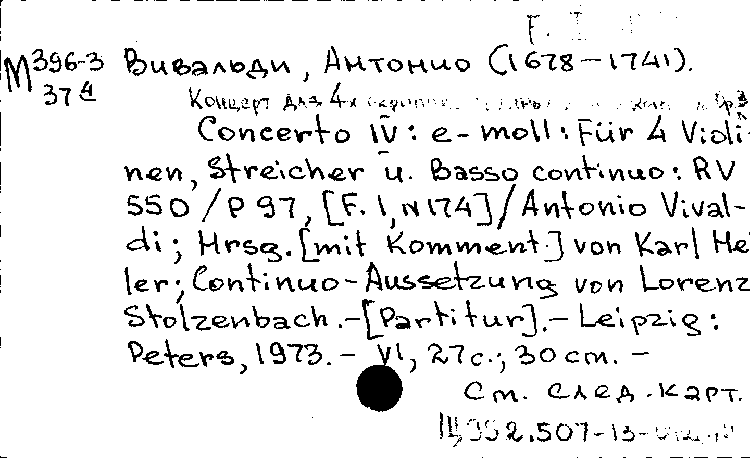 F. I
М 396-3 Вивальди, Антонио (1678–1741).
37 4
Концерт для 4х скрипок Op.3
Concerto IV: e-moll: Für 4 Violi-
nen, Streicher u. Basso continuo: RV
550/P 97, [F. I, N 174]/Antonio Vival-
di; Hrsg. [mit Komment.] von Karl He
ler; Continuo-Aussetzung von Lorenz
Stolzenbach.–[Partitur].–Leipzig:
Peters, 1973.– VI, 27с.; 30 cm. –
См. след. карт.
Ц 352.507-13-